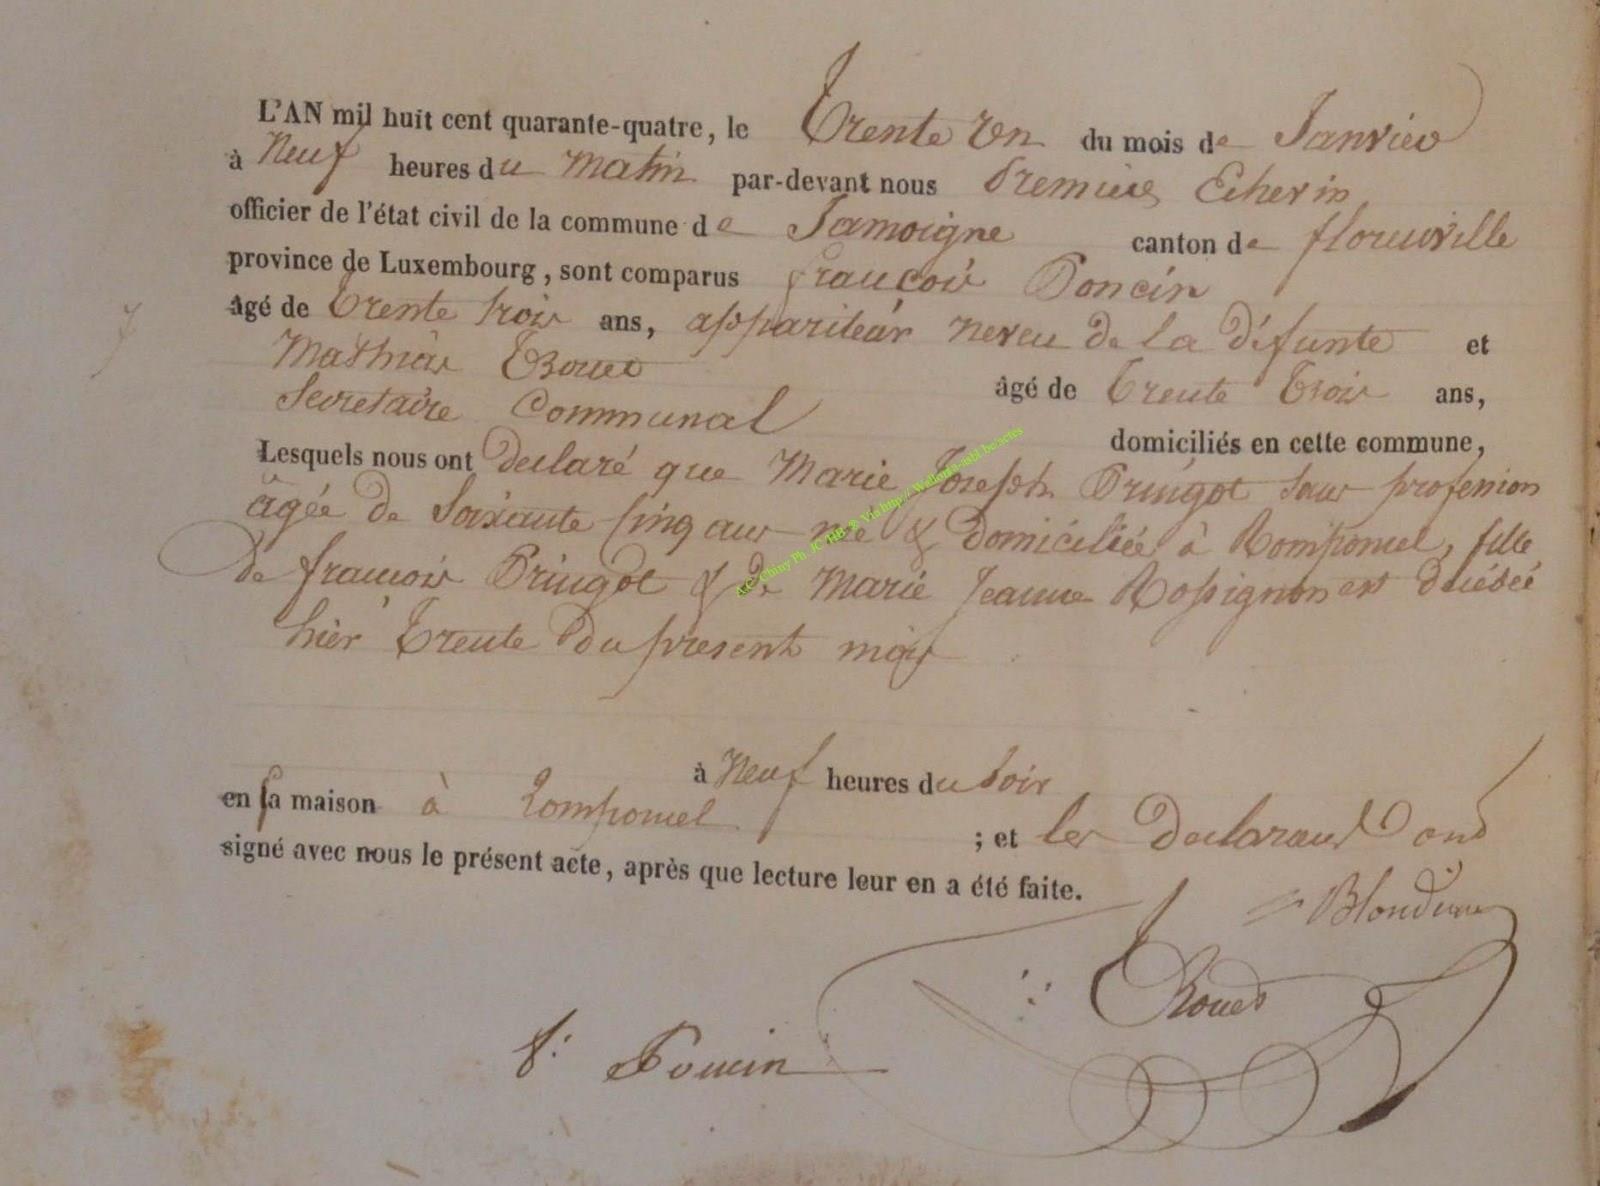 L'AN mil huit cent quarante-quatre, le Trente Un du mois de Janvier
à Neuf heures du Matin par-devant nous Premier Echevin
officier de l'état civil de la commune de Jamoigne canton de florenville
province de Luxembourg, sont comparus françois Poncin
âgé de Trente trois ans, appariteur neveu de la défunte et
Mathias
âgé de Trente Trois ans,
Secretaire Communal
domiciliés en cette commune,
Lesquels nous ont declaré que Marie Joseph Pringot sans profession
âgée de Soixante cinq ans né & domiciliée à Romponcel, fille
de françois Pringot & de Marie Jeanne Rossignon est décédée
hier Trente du present mois
à Neuf heures du Soir
en sa maison à Romponcel ; et les declarans ont
signé avec nous le présent acte, après que lecture leur en a été faite.
f: Poncin
A.C. Chiny Ph. JC HB ® Via http://Wallonia-asbl.be/actes